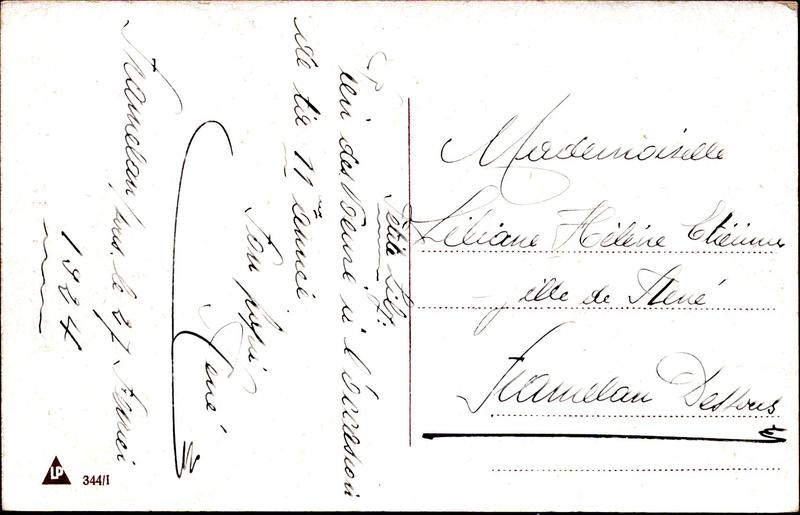 Petite Lili
Rien des Voeux à l'occasion
de ta 11ème année
Ton papa
René
Tramelan, le 27 Février
1924
Mademoiselle
Liliane Hélène Etienne
fille de René
Tramelan Dessous
LP 344/I